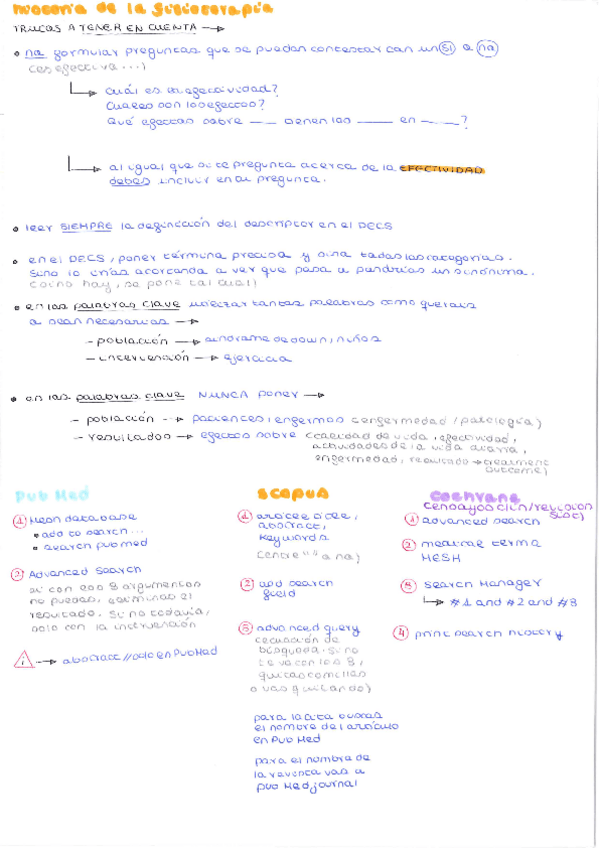 historia de la fisioterapia
TRUCOS A TENER EN CUENTA →
• no formular preguntas que se puedan contestar con un SI o no
(es efectiva...)
↳ cuál es la efectividad?
cuáles son los efectos?
Qué efectos sobre ___ tienen los ___ en ___?
↳ al igual que si te pregunta acerca de la EFECTIVIDAD
debes incluir en tu pregunta.
• leer SIEMPRE la definición del descriptor en el DECS
• en el DECS, poner término preciso y sino todas las categorías.
Sino lo irías acortando a ver que pasa o pondrías un sinónimo.
(si no hay, se pone tal cual)
• en las palabras clave utilizar tantas palabras como querais
o sean necesarias →
- población → síndrome de down, niños
- intervención → ejercicio
• en las palabras clave NUNCA poner →
- población → pacientes, enfermos (enfermedad / patología)
- resultados → efectos sobre (calidad de vida, efectividad,
actividades de la vida diaria,
enfermedad, resultado → treatment
outcome)
Pub Med
1) Mesh database
• add to search...
• search pubmed
2) Advanced search
si con los 3 argumentos
no puedes, eliminas el
resultado. Si no todavía,
solo con la intervención
⚠ → abstract // solo en PubMed
scopus
1) article title,
abstract,
keywords
(entre " " o no)
2) add search
field
3) advanced query
(ecuación de
búsqueda. Si no
te va con los 3,
quitas comillas
o vas quitando)
para la cita buscas
el nombre del artículo
en Pub Med
para el nombre de
la revista vas a
Pub Med journal
cochrane
(ensayo clínico/revision
sist)
1) advanced search
2) medical terms
MESH
3) search Manager
↳ #1 and #2 and #3
4) print search history